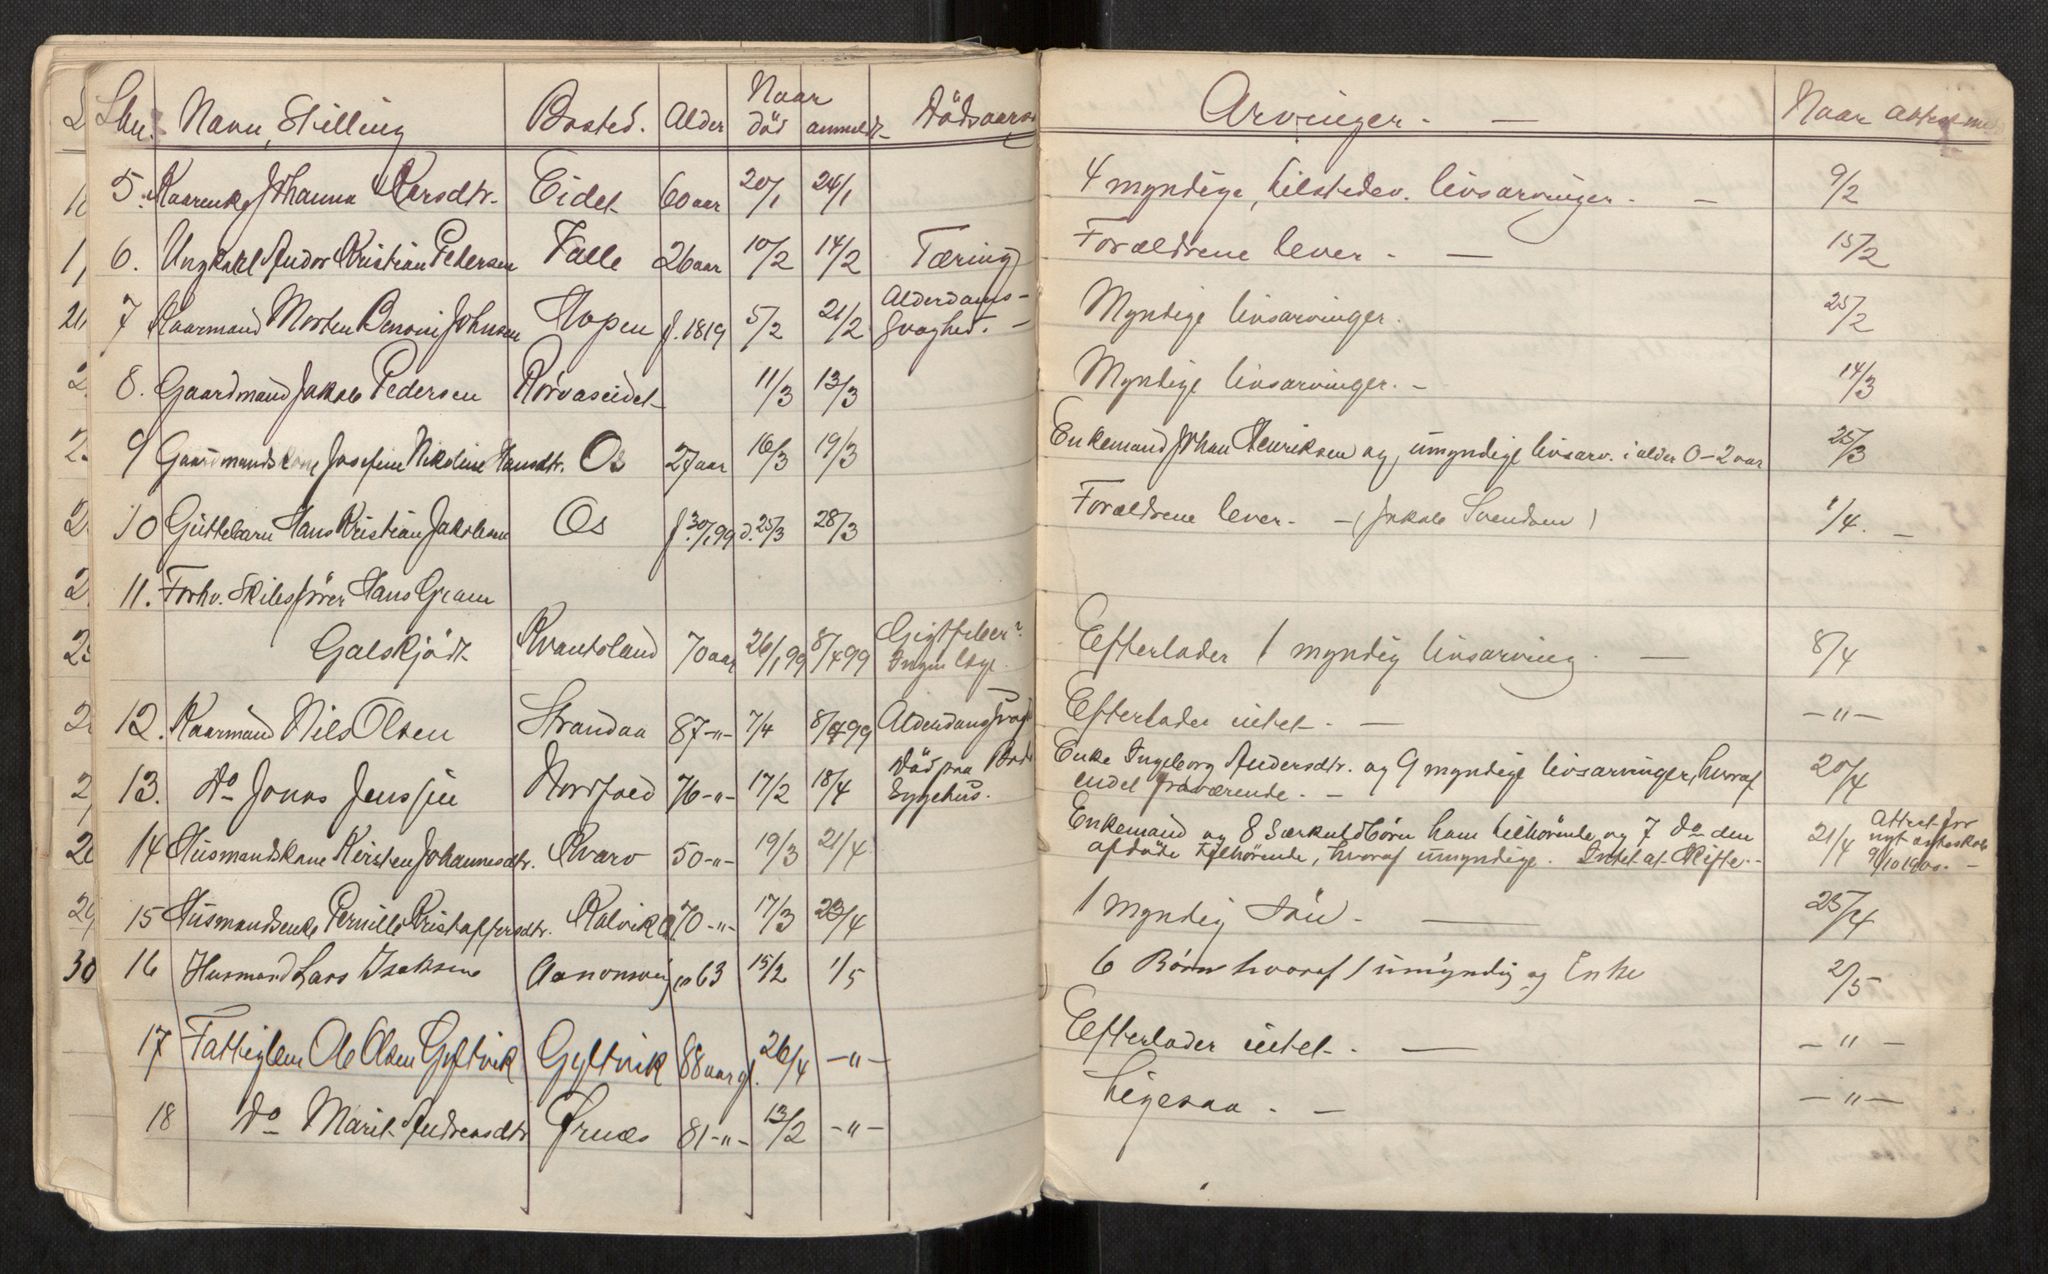 Lbn. Navn, Stilling Bosted. Alder Naar död anmeldt Dödsaars Arvinger. — Naar attest
5. Johanna Larsdtr. Eidet 60 aar 20/1 24/1 4 myndige, tilstedev. livsarvinger. — 9/2
6. Ungkarl Andor Kristian Pedersen Falle 26 aar 10/2 14/2 Tæring Forældrene lever. — 15/2
7 Kaarmand Morten Benoni Johnsen Hopen f. 1819 5/2 21/2 Alderdoms- Myndige livsarvinger. 25/2
svaghed. —
8. Gaardmand Jakob Pedersen Rörvaseidet 11/3 13/3 Myndige livsarvinger. — 14/3
9 Gaardmandskone Josefine Nikoline Hansdtr. Os 27 aar 16/3 19/3 Enkemand Johan Henriksen og umyndige livsarv. i alder 0-2 aar 25/3
10 Guttebarn Hans Kristian Jakobsen Os f. 30/1 99 d. 25/3 28/3 Forældrene lever. — (Jakob Svendsen) 1/4. —
11. Forhv. Skibsfører Hans Gram
Galskjödt Kvantoland 70 aar 26/1 99 8/4 99 Gigtfeber? Efterlader 1 myndig livsarving. — 8/4
Ingen læge.
12. Kaarmand Nils Olsen Strandaa 87 -"- 7/4 8/4 99 Efterlader intet. — -"-
13. Do Jonas Jenssen Nordfjord 76 -"- 17/2 18/4 Död paa Bodö Enke Ingeborg Andersdtr. og 9 myndige livsarvinger, hvoraf 20/4
Sygehus. endel fraværende. —
14 Husmandskone Kirsten Johannesdtr. Kvarv 50 -"- 19/3 21/4 Enkemand og 8 Særkuldbörn ham tilhörende og 7 do den 21/4 Attest for
afdöde tilhörende, hvoraf umyndige. Intet at skifte. — nyt ægteskab
9/10 1900. —
15 Husmandsenke Pernille Kristoffersdtr. Kalvik 70 -"- 17/3 23/4 1 myndig Sön. — 25/4
16 Husmand Lars Isaksen 63 15/2 1/5 6 Börn hvoraf 1 umyndig og Enke 2/5
17 Fattiglem Ole Olsen Gyltvik Gyltvik 88 aar gl. 26/4 -"- Efterlader intet. — -"-
18 Do Marit Andreasdtr Ørnæs 81 -"- 13/2 -"- Ligesaa. — -"-
30